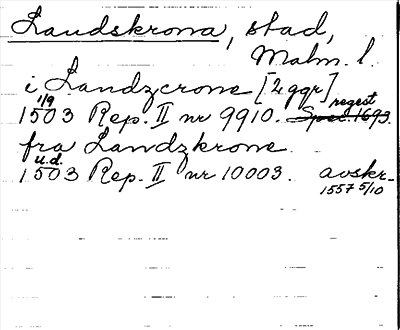 Landskrona, stad,
Malm. l.
i Landzcrone [2 ggr]
1/9 regest
1503 Rep. II nr 9910. Spec. 1693.
fra Landzkrone
u.d.
1503 Rep. II nr 10003. avskr.
1557 5/10